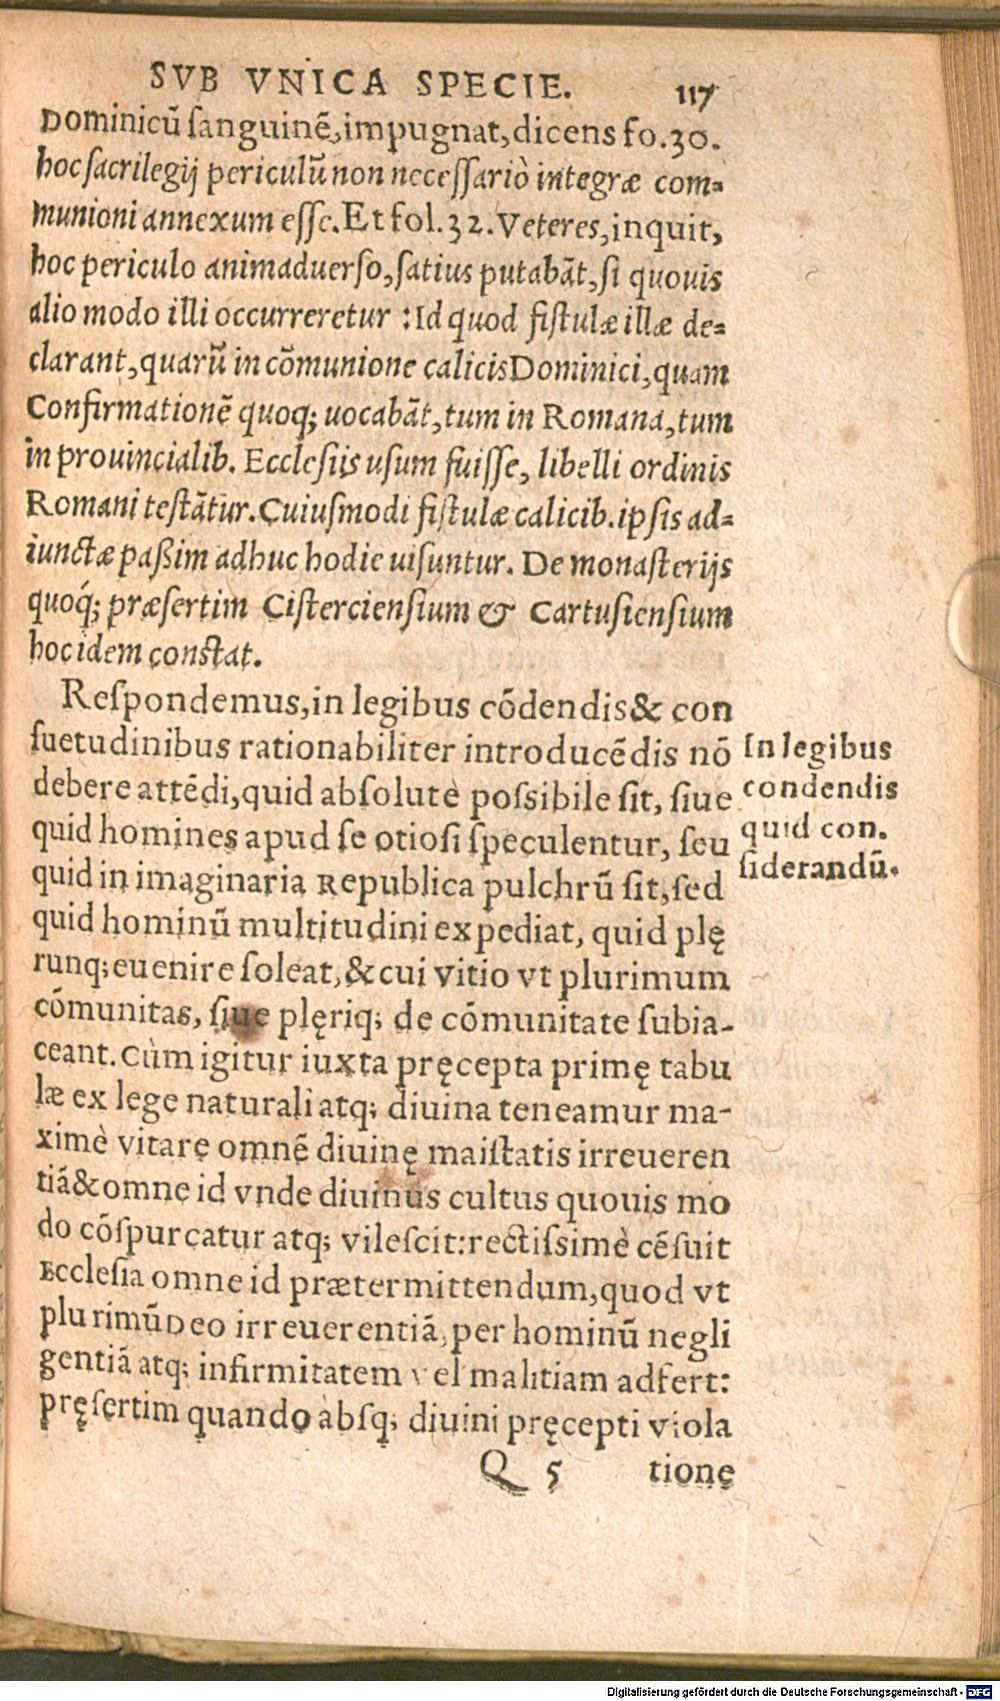 SVB VNICA SPECIE. 117
Dominicū ſanguinē, impugnat, dicens fo.30.
hoc ſacrilegij periculū non neceſſariò integræ com-
munioni annexum eſſe. Et fol.32. Veteres, inquit,
hoc periculo animaduerſo, ſatius putabāt, ſi quouis
alio modo illi occurreretur : Id quod fiſtulæ illæ de-
clarant, quarū in cōmunione calicis Dominici, quam
Confirmationē quoq; uocabāt, tum in Romana, tum
in prouincialib. Eccleſiis uſum fuiſſe, libelli ordinis
Romani teſtātur. Cuiuſmodi fiſtulæ calicib. ipſis ad-
iunctæ paßim adhuc hodie uiſuntur. De monaſterijs
quoq́; præſertim Ciſtercienſium & Cartuſienſium
hoc idem conſtat.
Reſpondemus, in legibus cōdendis & con
ſuetudinibus rationabiliter introducēdis nō
debere attēdi, quid abſolutè poſsibile ſit, ſiue
quid homines apud ſe otioſi ſpeculentur, ſeu
quid in imaginaria Republica pulchrū ſit, ſed
quid hominū multitudini expediat, quid plę
runq; euenire ſoleat, & cui vitio vt plurimum
cōmunitas, ſiue plęriq; de cōmunitate ſubia-
ceant. Cùm igitur iuxta pręcepta primę tabu
læ ex lege naturali atq; diuina teneamur ma-
ximè vitarę omnē diuinę maiſtatis irreueren
tiā & omne id vnde diuinus cultus quouis mo
do cōſpurcatur atq; vileſcit: rectiſsimè cēſuit
Eccleſia omne id prætermittendum, quod vt
plurimū Deo irreuerentiā, per hominū negli
gentiā atq; infirmitatem vel malitiam adfert:
pręſertim quando abſq; diuini pręcepti viola
Q 5 tionę
In legibus
condendis
quid con.
ſiderandū.
Digitalisierung gefördert durch die Deutsche Forschungsgemeinschaft - DFG